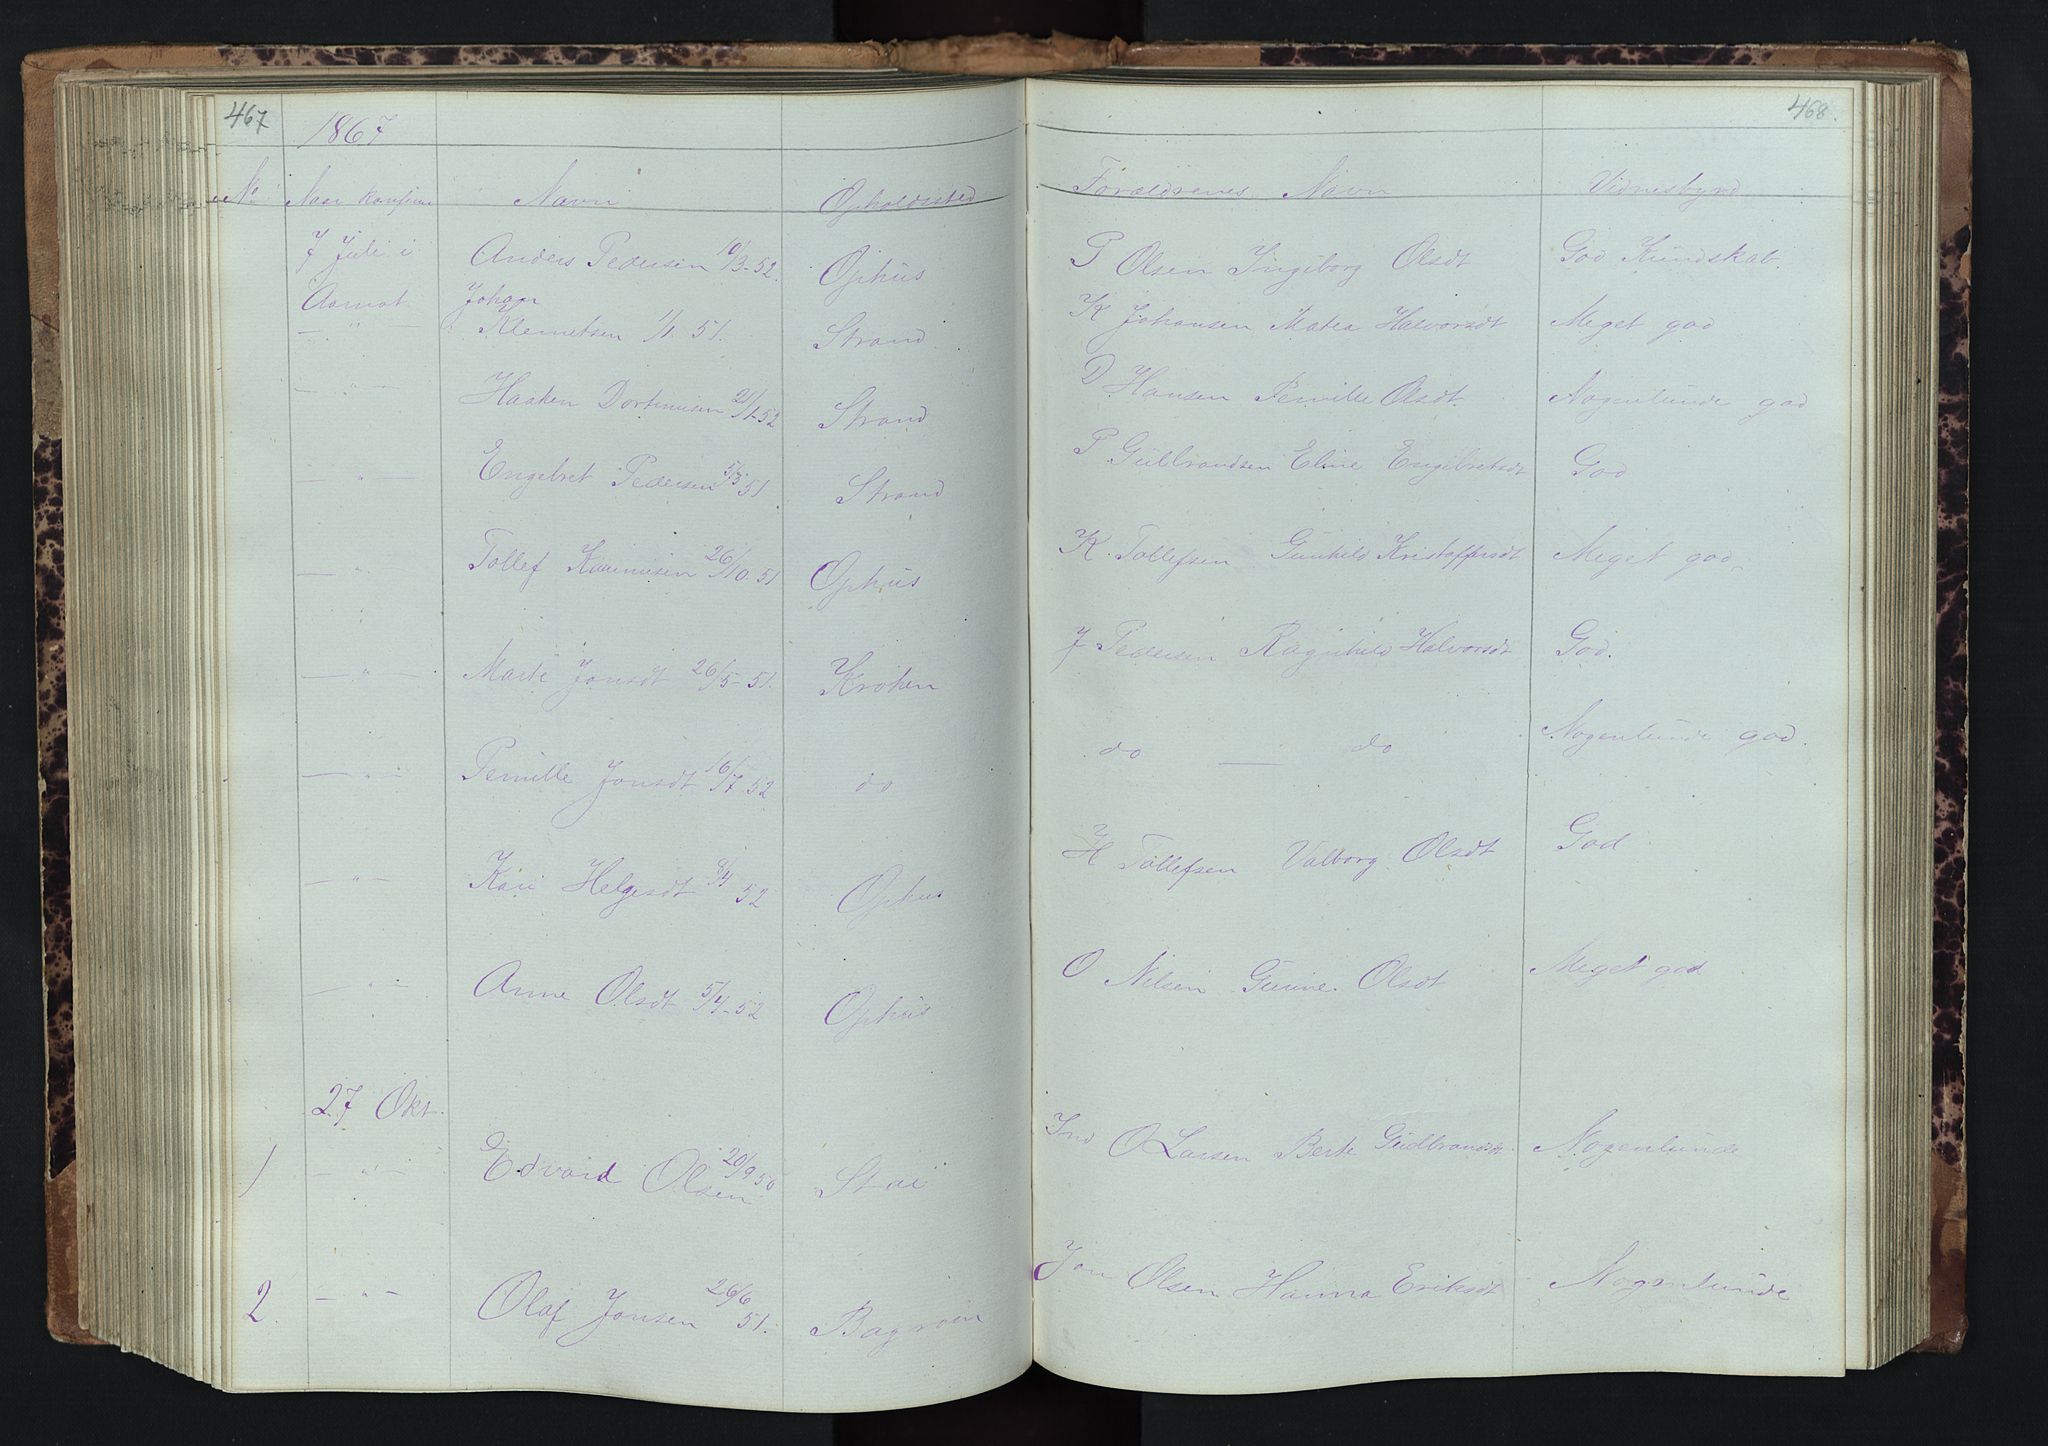 467
468.
1867
No Naar konfirm Navn Opholdssted Forældrenes Navn Vidnesbyrd
7 Juli i Anders Pedersen 10/3-52 Ophus P Olsen Ingiborg Olsdt God Kundskab.
Aamot Johan
— " — Klemetsen 1/1 51. Strand K Johansen Matea Halvorsdt Meget god
— " — Haaken Dortinusen 21/1-52 Strand D Hansen Pernille Olsdt Nogenlunde god
— " — Engebret Pedersen 5/3 51 Strand P Gulbrandsen Eline Engebretsdt God
— " — Tollef 26/10.51 Ophus K. Tollefsen Gunhild Kristoffersdt Meget god
— " — Marte Jonsdt 26/5-51. Kroken J Pedersen Ragnhild Halvorsdt God.
— " — Pernille Jonsdt 16/7 52 do do — do Nogenlunde god.
— " — Kari Helgesdt 52 Ophus H Tollefsen Valborg Olsdt God
— " — Anne Olsdt 5/4-52 Ophus O Nilsen Gunne Olsdt Meget god
27 Okt.
1 — " — Edvard Olsen 20/9 50 Stai Ind O Larsen Berte Gudbrandsdt. Nogenlunde
2. — " — Olaf Jonsen 26/6 51. Bagroen Jon Olsen Hanna Eriksdt Nogenlunde